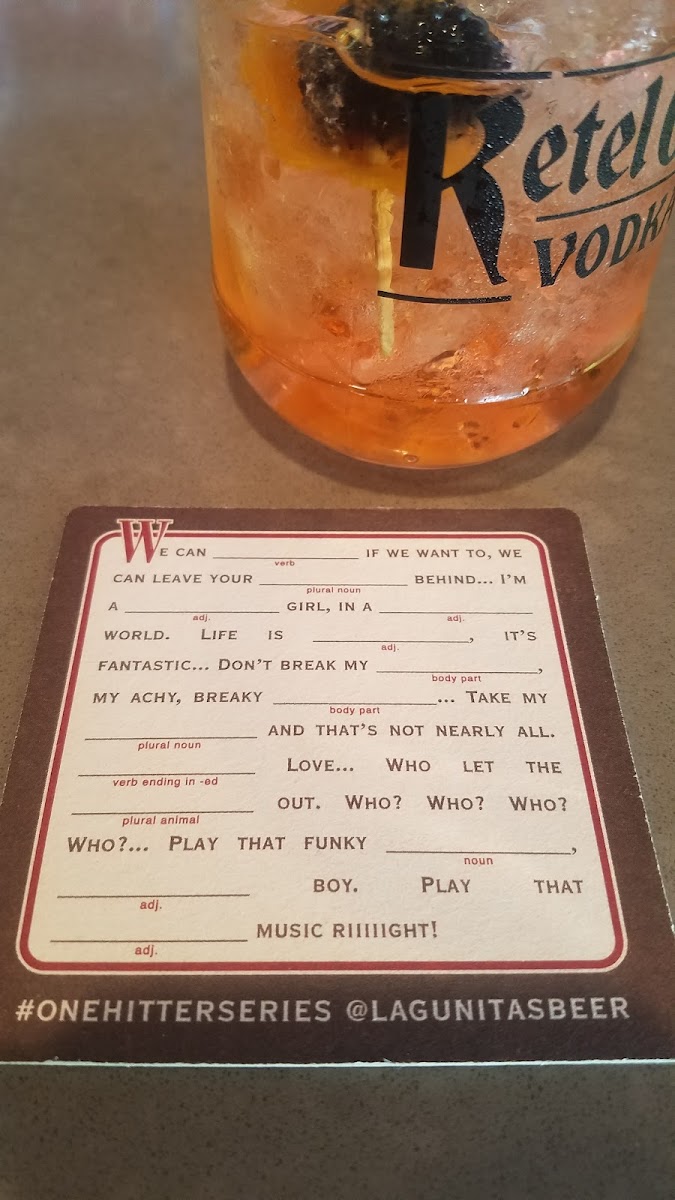 Ketel
VODKA
WE CAN ____ IF WE WANT TO, WE
verb
CAN LEAVE YOUR ____ BEHIND... I'M
plural noun
A ____ GIRL, IN A ____
adj. adj.
WORLD. LIFE IS ____, IT'S
adj.
FANTASTIC... DON'T BREAK MY ____,
body part
MY ACHY, BREAKY ____... TAKE MY
body part
____ AND THAT'S NOT NEARLY ALL.
plural noun
____ LOVE... WHO LET THE
verb ending in -ed
____ OUT. WHO? WHO? WHO?
plural animal
WHO?... PLAY THAT FUNKY ____,
noun
____ BOY. PLAY THAT
adj.
____ MUSIC RIIIIIGHT!
adj.
#ONEHITTERSERIES @LAGUNITASBEER